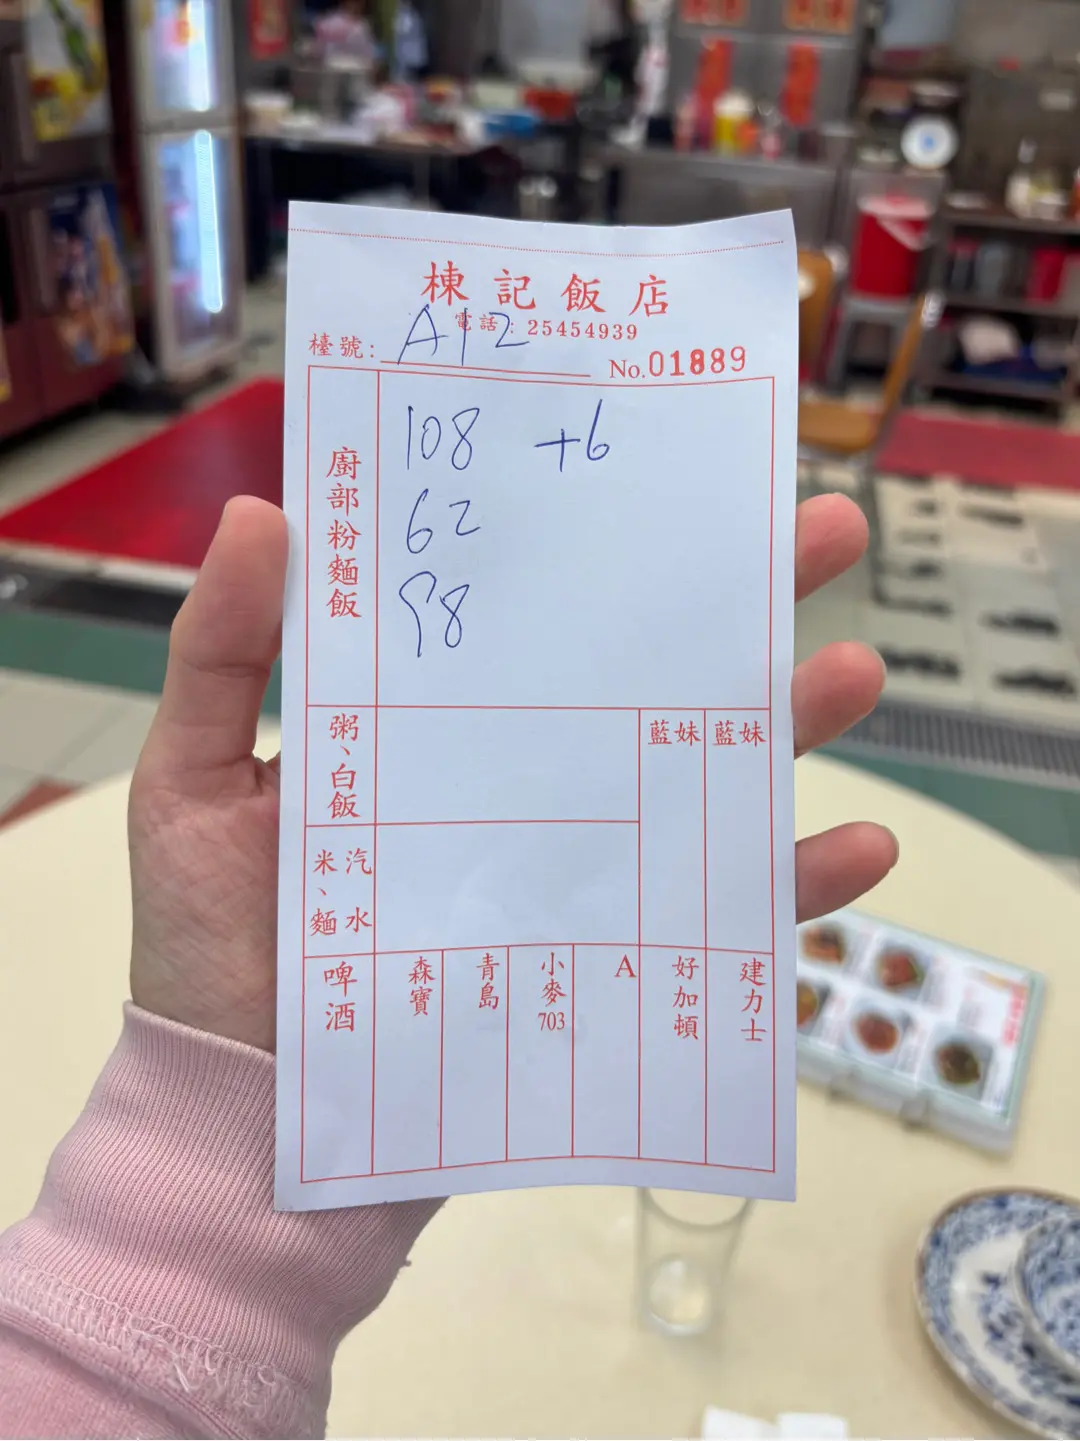 棟記飯店
電話：25454939
檯號： A12
No.01889
廚部粉麵飯
108 +6
62
98
粥、白飯
藍妹 藍妹
米、麵 汽水
啤酒
森寶
青島
小麥703
A
好加頓
建力士